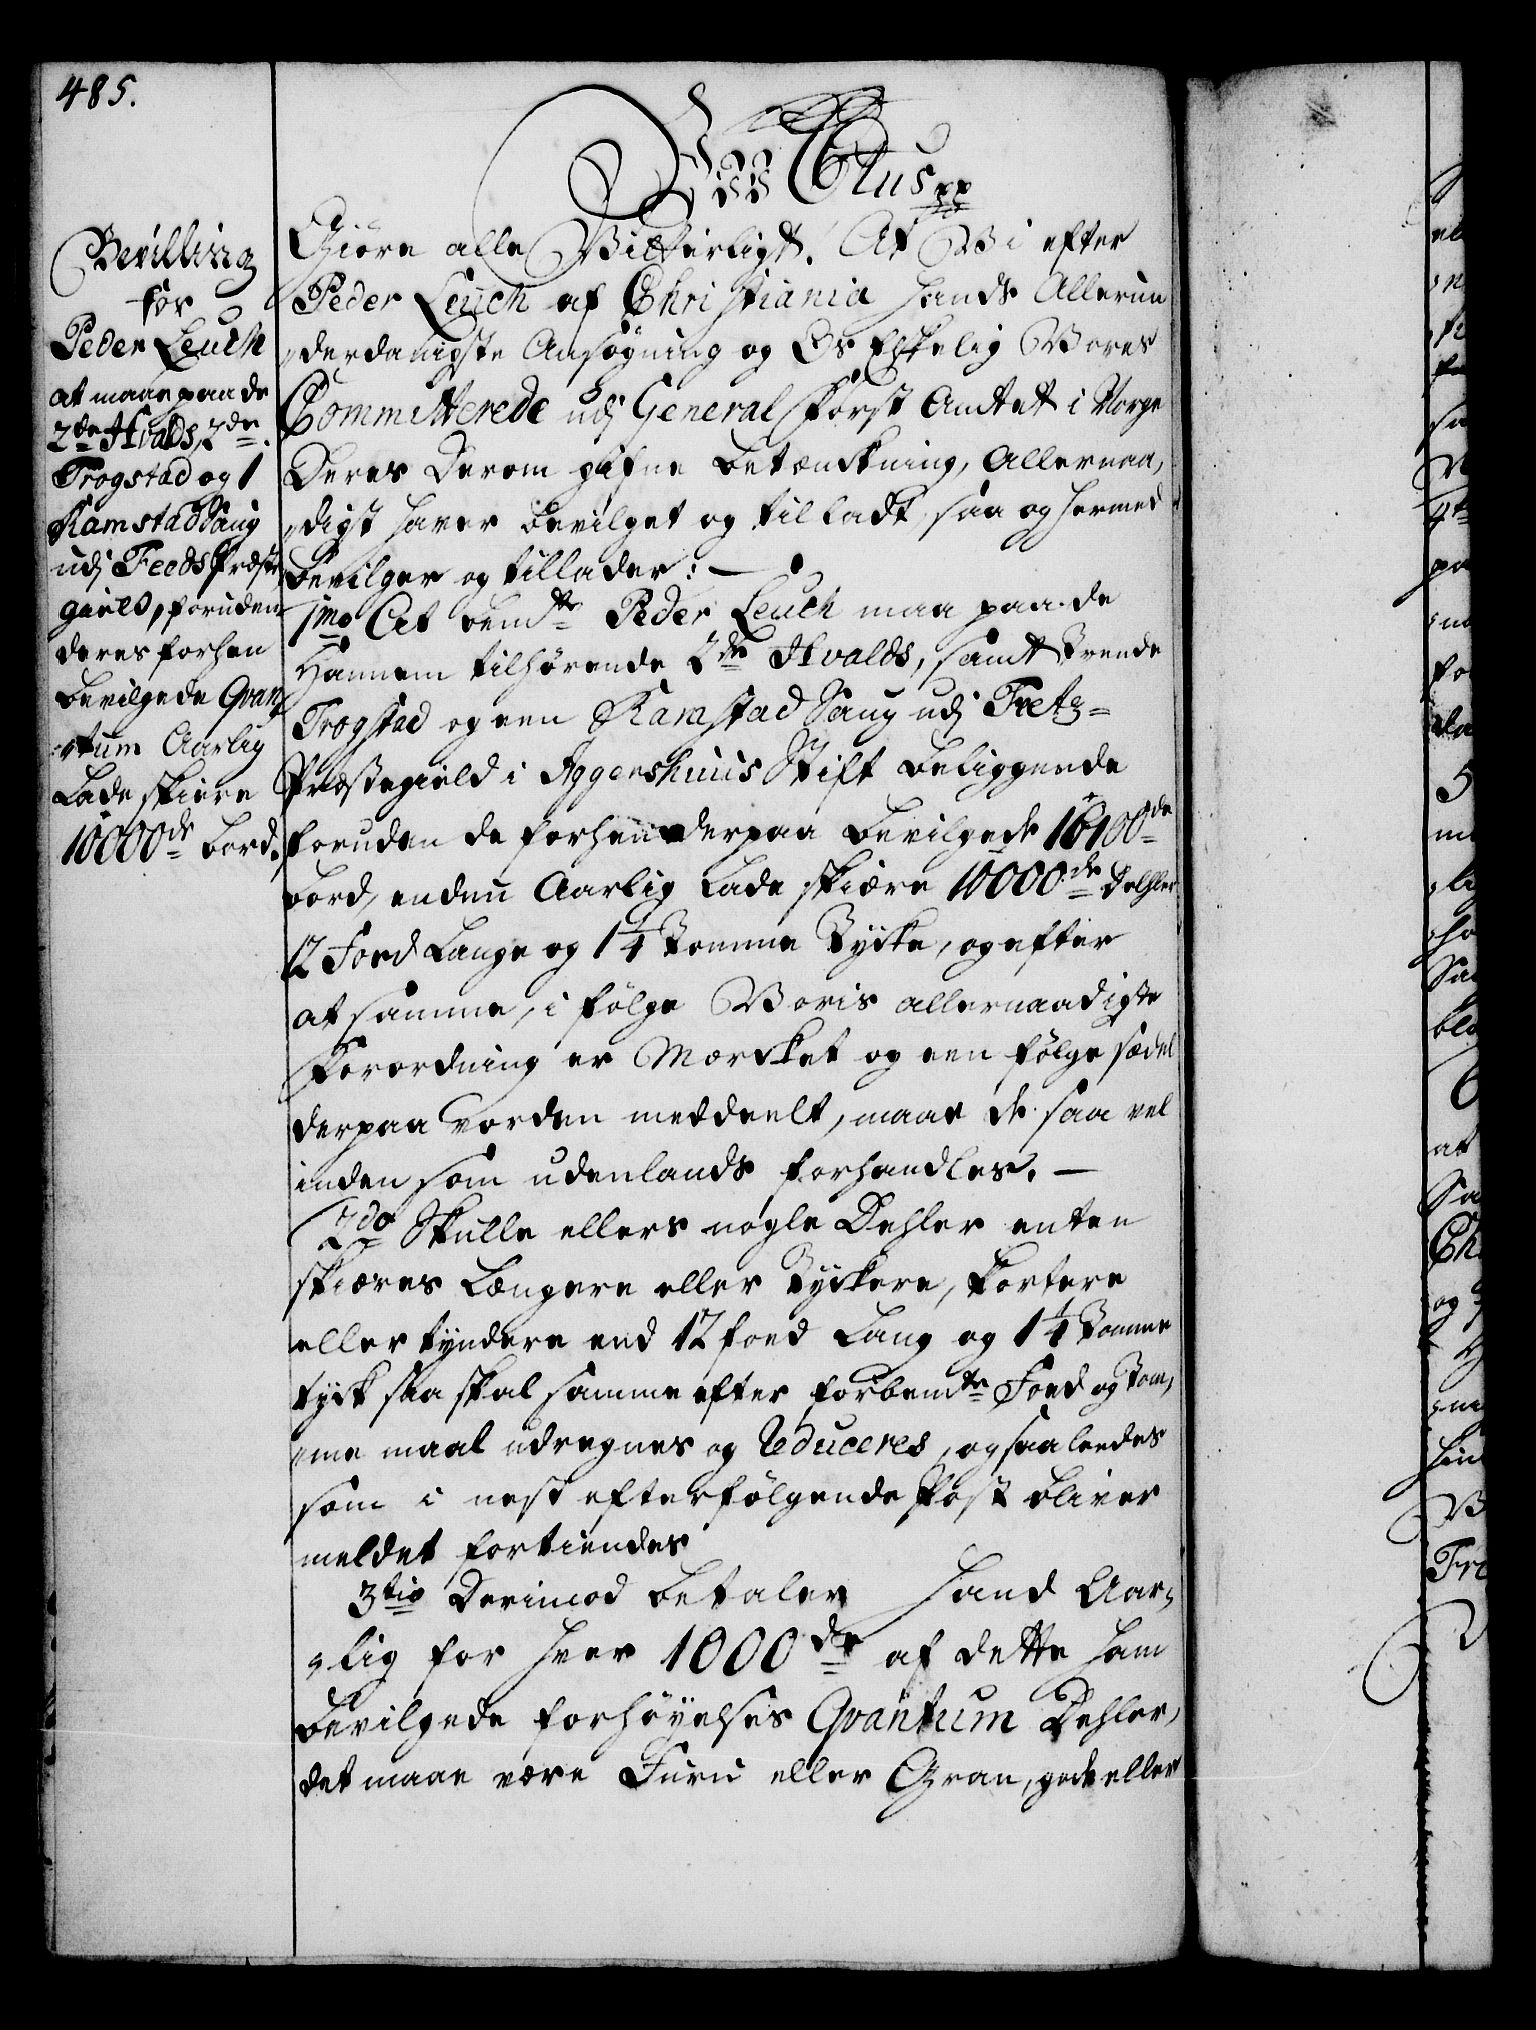 485.
Bevilling
for
Peder Leuch
at maae paa de
2de Hvalds, 2de
Trogstad og 1
Ramstad Saug
udj Feeds Præste
gield, foruden
deres forhen
bevilgede Qvan
tum Aarlig
Lade skiere
10000de bord.
Vi Ctus pp
Giøre alle Vitterligt! At Vi efter
Peder Leuch af Christiania hands Allerun
derdanigste Ansøgning og Os Elskelig Vores
Committerede udj General Forst Amtet i Norge
Deres Derom gifne betænkning, Allernaa,
digst haver bevilget og tilladt, saa og hermed
bevilger og tillader: —
1mo At bemte Peder Leuch maa paa de
Hannem tilhørende 2de Hvalds, samt Tvende
Trogstad og een Ramstad Saug udj Feetz=
Præstegield i Aggershuus Stift beliggende
foruden de forhen derpaa bevilgede 16100de
bord, endnu Aarlig lade skiære 10000de Dehler
12 Foed Lange og 1 1/4 Tomme Tycke, og efter
at samme, i følge Voris allernaadigste
Forordning er Mercket og een følge sædel
derpaa vorden meddeelt, maae de saa vel
inden som udenlands forhandles. —
2do Skulle ellers nogle Dehler enten
skiæres Længere eller Tyckere, kortere
eller tyndere end 12 foed Lang og 1 1/4 Tomme
tyck saa skal samme efter forbemte Foed og Tom,
me maal udregnes og Reduceres, og saaleedes
som i nest efterfølgende Post bliver
meldet fortiendes
3tio Derimod betaler hand Aar,
lig for hver 1000de af dette ham
bevilgede forhøyelses Qvantum Dehler,
det maae være Furu eller Gran, gode eller